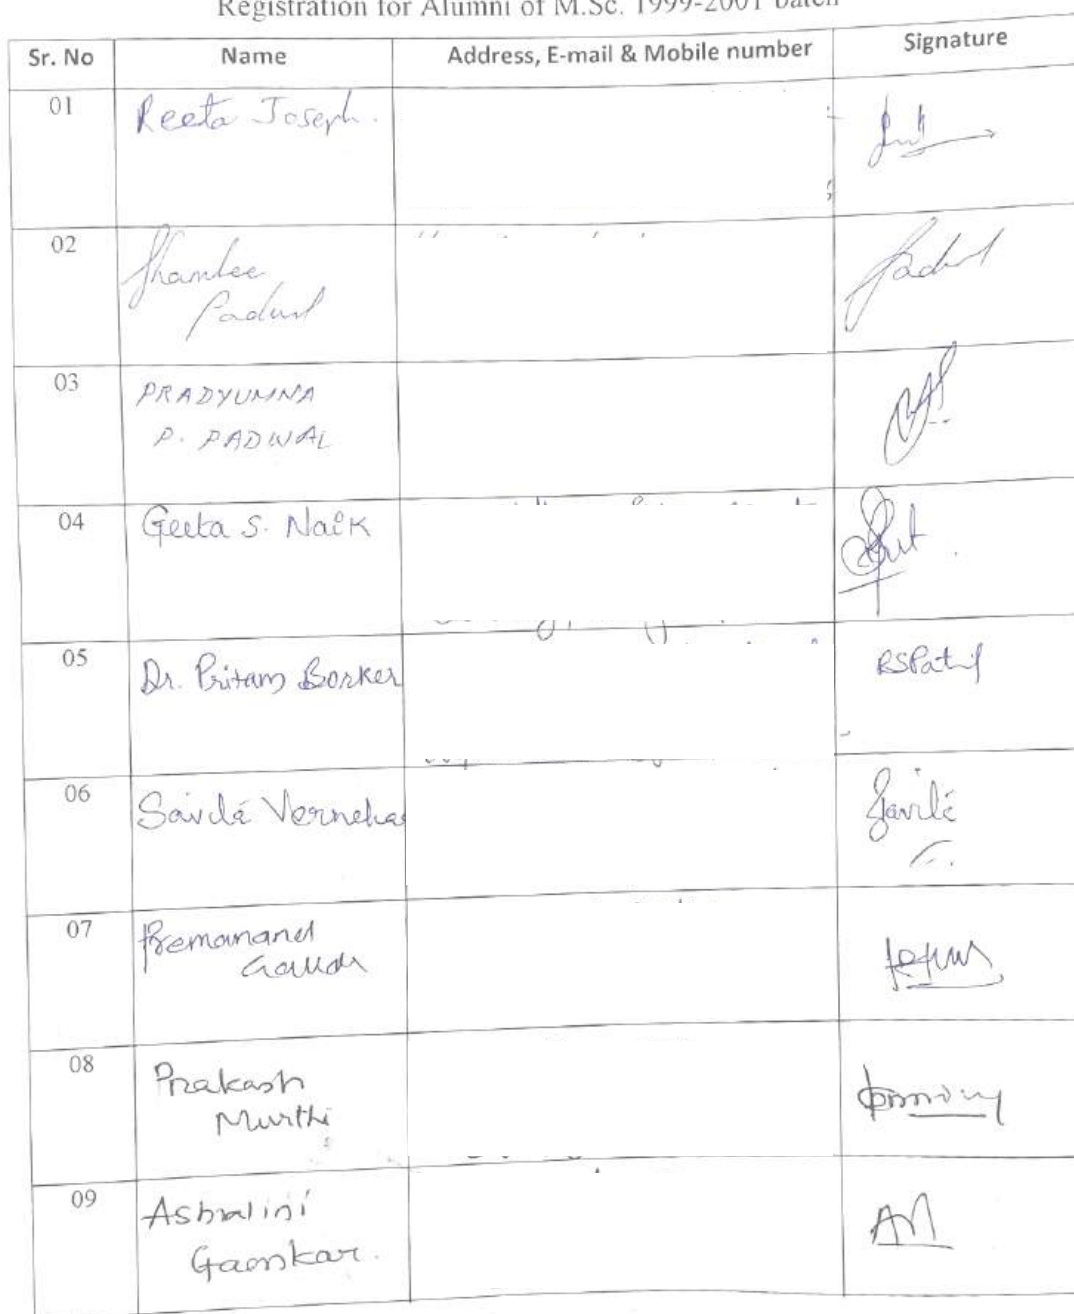 Registration for Alumni of M.Sc. 1999-2001 batch
Sr. No Name Address, E-mail & Mobile number Signature
01 Reeta Joseph.
02 Shamlee
Padwal Padwal
03 PRADYUMNA
P. PADWAL
04 Geeta S. Naik
05 Dr. Pritam Borker RSPatil
06 Savita Vernekar Savita
07 Premanand
Gauda
08 Prakash
Murthi
09
Gaonkar.